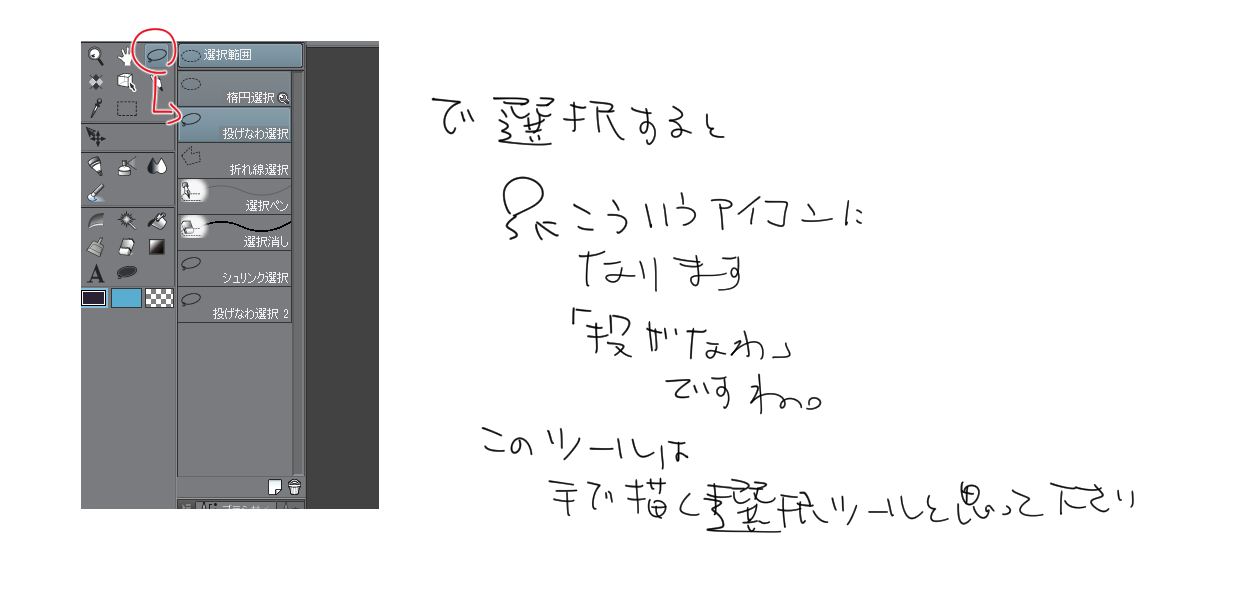 選択範囲
楕円選択
投げなわ選択
折れ線選択
選択ペン
選択消し
シュリンク選択
投げなわ選択 2
A
で選択すると
こういうアイコンに
なります
「投げなわ」
ですわ。
このツールは
手で描く選択ツールと思って下さい